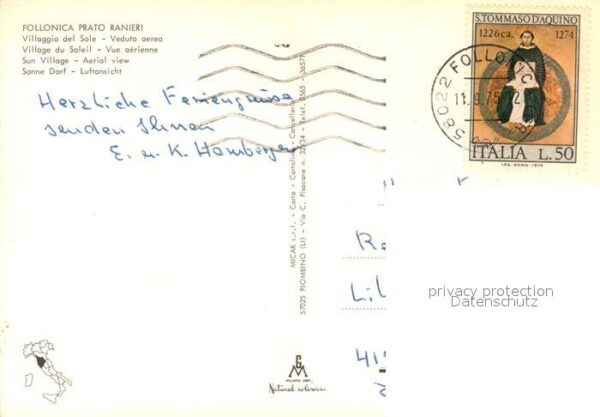 FOLLONICA PRATO RANIERI
Villaggio del Sole - Veduta aerea
Village du Soleil - Vue aérienne
Sun Village - Aerial view
Sonne Dorf - Luftansicht
Herzliche Feriengrüsse
senden Ihnen
E. u. K. Homberger
MICAR s.r.l. - Carta - Cartoline - Cancelleria
57025 PIOMBINO (LI) - Via C. Pisacane n. 32/34 - Telef. 0565 - 36571
S. TOMMASO D'AQUINO
1226 ca. 1274
58022 FOLLONICA
11.9.75
ITALIA L. 50
I.P.S.-ROMA-1974
41
privacy protection
Datenschutz
Natural colours